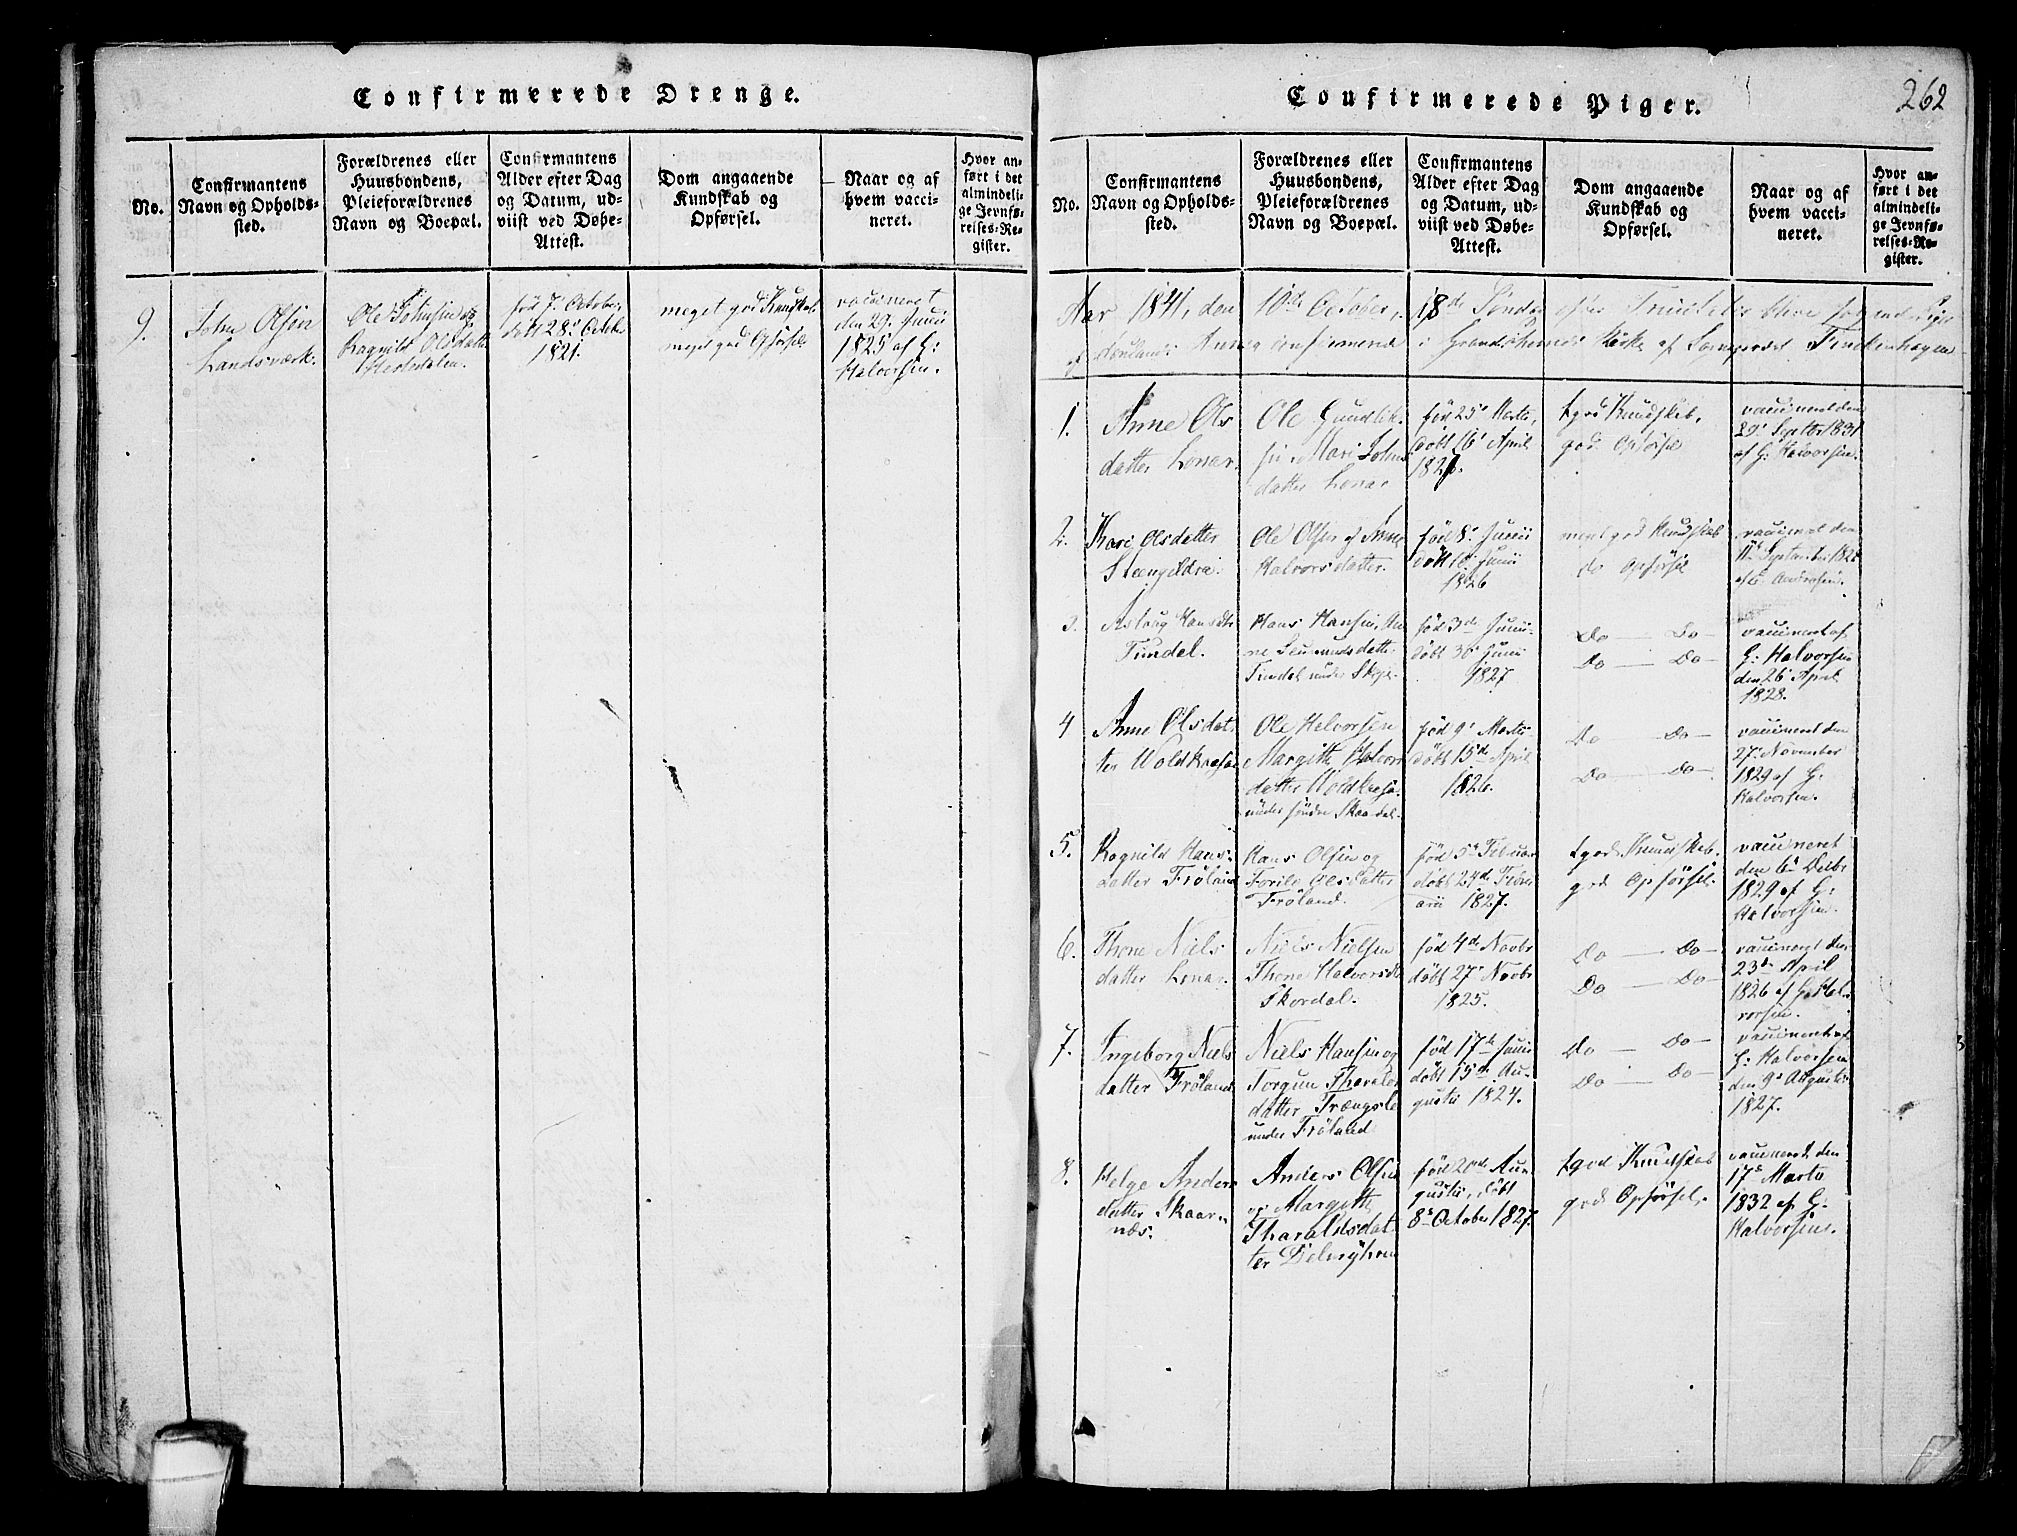 Confirmerede Drenge.
No.
Confirmantens
Navn og Opholds-
sted.
Forældrenes eller
Huusbondens,
Pleieforældrenes
Navn og Boepæl.
Confirmantens
Alder efter Dag
og Datum, ud-
viist ved Døbe-
Attest.
Dom angaaende
Kundskab og
Opførsel.
Naar og af
hvem vacci-
neret.
Hvor an-
ført i det
almindeli-
ge Jevnfø-
relses-Re-
gister.
9.
John Olsen
Landsværk.
Ole Johnsen og
Ragnild Olsdatter
Hestedalen.
fød 7. October,
døbt 28. Octob.
1821.
meget god Kundskab
meget god Opførsel.
vaccineret
den 29. Junii
1825 af G:
Halvorsen.
Confirmerede Piger.
262
No.
Confirmantens
Navn og Opholds-
sted.
Forældrenes eller
Huusbondens,
Pleieforældrenes
Navn og Boepæl.
Confirmantens
Alder efter Dag
og Datum, ud-
viist ved Døbe-
Attest.
Dom angaaende
Kundskab og
Opførsel.
Naar og af
hvem vacci-
neret.
Hvor an-
ført i det
almindeli-
ge Jevnfø-
relses-Re-
gister.
Aar 1841, den 10de October, 18de Søndag efter Trinitatis bleve følgende Piger
af confirmerede i Kirke af Sognepræst Finckenhagen
1.
Anne Ols
datter Lonar.
Ole Gundlik-
sen Mari Johns
datter Lonar
fød 25. Marts,
døbt 16. April
182
tgod Kundskab,
god Opførsel
vaccineret den
29. Septbr 1831
af G: Halvorsen.
2.
Kari Olsdatter
Steengildra.
Ole Olsen og Anne
Halvorsdatter.
fød 8. Junii
døbt 18. Junii
1826
meget god Kundskab
do Opførsel
vaccineret den
11. September 1828
af Andersen.
3.
Aslaug Hansdtr
Tindal.
Hans Hansen, An
ne datter
Tindal under
fød 3de Junii
døbt 30. Junii
1827
Do — Do —
Do — Do —
vaccineret af
G: Halvorsen
den 26 April
1828.
4
Anne Olsdat
ter Woldkaasa
Ole Halvorsen
Margith Halvors
datter Woldkaasa
under søndre Skaardal.
fød 9. Marts
døbt 15de April
1826.
Do — Do —
Do — Do —
vaccineret den
27. November
1829 af G:
Halvorsen.
5.
Ragnild Hans-
datter Frøland
Hans Olsen og
Torild Olsdatter
Frøland.
fød 5te Februar
døbt 24de Febru
arii 1827.
tgod Kundskab,
god Opførsel.
vaccineret
den 6te Decbr
1829 af G:
Halvorsen.
6.
Thone Niels
datter Lonar.
Niels Nielsen
Thone Halvorsdtr
Skordal.
fød 4de Novbr
døbt 27. Novbr
1825.
Do — Do —
Do — Do —
vaccineret den
23de April
1826 af G. Hal-
vorsen.
7.
Ingeborg Niels
datter Frøland
Niels Hansen og
Torgun Tharalds
datter Trængsle
under Frøland
fød 17de Junii
døbt 15de Au-
gustii 1824.
Do — Do —
Do — Do —
vaccineret af
G: Halvorsen
den 9. Augustii
1827.
8.
Helge Anders
datter Skaar-
næs.
Anders Olsen
og Margith
Tharaldsdat
ter
fød 20de Au-
gustii, døbt
8. October 1827.
tgod Kundskab
god Opførsel.
vaccineret den
17. Marts
1832 af G:
Halvorsen.